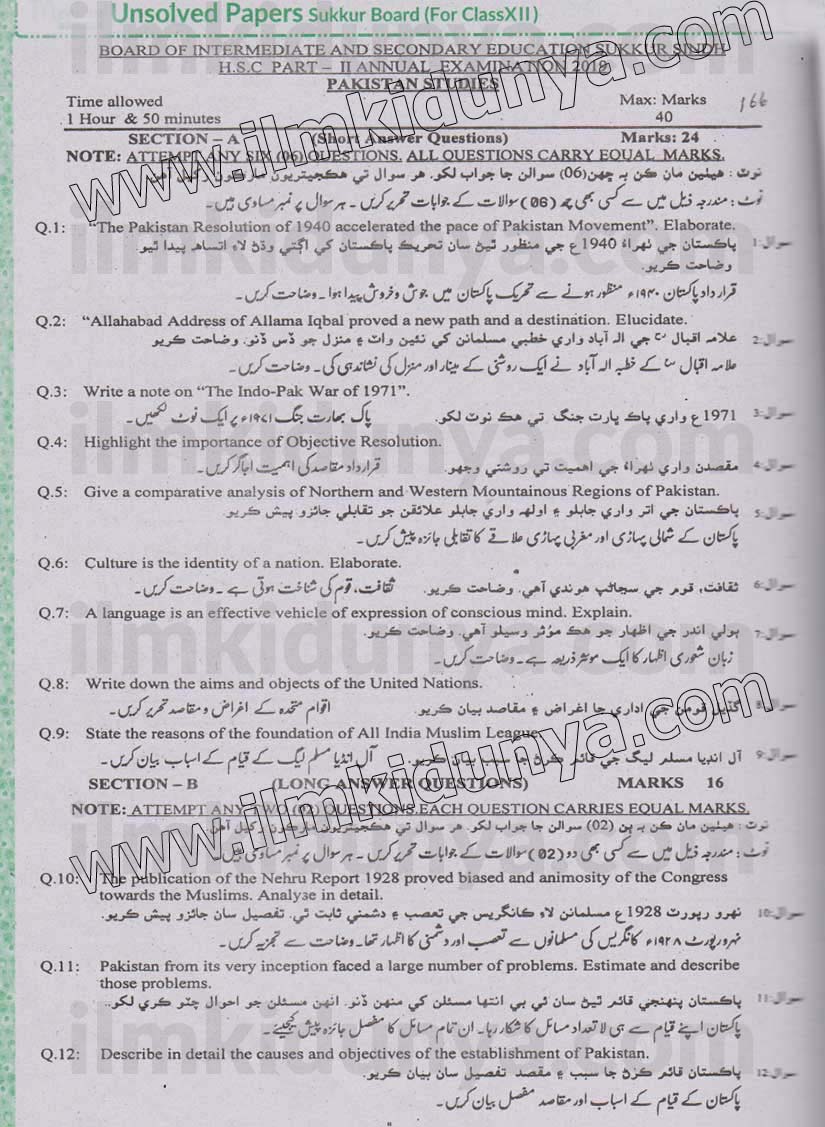 Unsolved Papers Sukkur Board (For ClassXII)
BOARD OF INTERMEDIATE AND SECONDARY EDUCATION SUKKUR SINDH
H.S.C PART – II ANNUAL EXAMINATION 2019
PAKISTAN STUDIES
166
Time allowed Max: Marks
1 Hour & 50 minutes 40
SECTION – A (Short Answer Questions) Marks: 24
NOTE: ATTEMPT ANY SIX (06) QUESTIONS. ALL QUESTIONS CARRY EQUAL MARKS.
نوٽ : هيٺين مان ڪن به ڇهن (06) سوالن جا جواب لکو. هر سوال تي هڪجيتريون مارڪون رکيل آهن.
نوٹ : مندرجہ ذیل میں سے کسی بھی چھ (06) سوالات کے جوابات تحریر کریں ۔ ہر سوال پر نمبر مساوی ہیں ۔
Q.1: "The Pakistan Resolution of 1940 accelerated the pace of Pakistan Movement". Elaborate.
سوال:1 پاڪستان جي ٺهراءُ 1940ع جي منظور ٿيڻ سان تحريڪ پاڪستان کي اڳتي وڌڻ لاءِ اتساهہ پيدا ٿيو.
وضاحت ڪريو.
قرارداد پاکستان ۱۹۴۰ء منظور ہونے سے تحریک پاکستان میں جوش و خروش پیدا ہوا ۔ وضاحت کریں ۔
Q.2: "Allahabad Address of Allama Iqbal proved a new path and a destination. Elucidate.
سوال:2 علامه اقبال جي اله آباد واري خطبي مسلمانن کي نئين واٽ ۽ منزل جو ڏس ڏنو. وضاحت ڪريو
علامہ اقبال کے خطبہ الہ آباد نے ایک روشنی کے مینار اور منزل کی نشاندہی کی ۔ وضاحت کریں ۔
Q.3: Write a note on "The Indo-Pak War of 1971".
سوال:3 1971ع واري پاڪ ڀارت جنگ تي هڪ نوٽ لکو. پاک بھارت جنگ ۱۹۷۱ء پر ایک نوٹ لکھیں ۔
Q.4: Highlight the importance of Objective Resolution.
سوال:4 مقصدن واري ٺهراءُ جي اهميت تي روشني وجهو. قرارداد مقاصد کی اہمیت اجاگر کریں ۔
Q.5: Give a comparative analysis of Northern and Western Mountainous Regions of Pakistan.
سوال:5 پاڪستان جي اتر واري جابلو ۽ اولهه واري جابلو علائقن جو تقابلي جائزو پيش ڪريو.
پاکستان کے شمالی پہاڑی اور مغربی پہاڑی علاقے کا تقابلی جائزہ پیش کریں ۔
Q.6: Culture is the identity of a nation. Elaborate.
سوال:6 ثقافت، قوم جي سڃاڻپ هوندي آهي. وضاحت ڪريو. ثقافت، قوم کی شناخت ہوتی ہے ۔ وضاحت کریں ۔
Q.7: A language is an effective vehicle of expression of conscious mind. Explain.
سوال:7 ٻولي اندر جي اظهار جو هڪ مؤثر وسيلو آهي. وضاحت ڪريو.
زبان شعوری اظہار کا ایک موثر ذریعہ ہے ۔ وضاحت کریں ۔
Q.8: Write down the aims and objects of the United Nations.
سوال:8 گڏيل قومن جي اداري جا اغراض ۽ مقاصد بيان ڪريو. اقوام متحدہ کے اغراض و مقاصد تحریر کریں ۔
Q.9: State the reasons of the foundation of All India Muslim League.
سوال:9 آل انڊيا مسلم ليگ جي قائم ڪرڻ جا سبب بيان ڪريو. آل انڈیا مسلم لیگ کے قیام کے اسباب بیان کریں ۔
SECTION – B (LONG ANSWER QUESTIONS) MARKS 16
NOTE: ATTEMPT ANY TWO (02) QUESTIONS. EACH QUESTION CARRIES EQUAL MARKS.
نوٽ : هيٺين مان ڪن به ٻن (02) سوالن جا جواب لکو. هر سوال تي هڪجيتريون مارڪون رکيل آهن.
نوٹ : مندرجہ ذیل میں سے کسی بھی دو (02) سوالات کے جوابات تحریر کریں ۔ ہر سوال پر نمبر مساوی ہیں ۔
Q.10: The publication of the Nehru Report 1928 proved biased and animosity of the Congress
towards the Muslims. Analyse in detail.
سوال:10 نهرو رپورٽ 1928ع مسلمانن لاءِ ڪانگريس جي تعصب ۽ دشمني ثابت ٿي. تفصيل سان جائزو پيش ڪريو.
نہرو رپورٹ ۱۹۲۸ء کانگریس کی مسلمانوں سے تعصب اور دشمنی کا اظہار تھا ۔ وضاحت سے تجزیہ کریں ۔
Q.11: Pakistan from its very inception faced a large number of problems. Estimate and describe
those problems.
سوال:11 پاڪستان پنهنجي قائم ٿيڻ سان ئي بي انتها مسئلن کي منهن ڏنو. انهن مسئلن جو احوال چٽو ڪري لکو..
پاکستان اپنے قیام سے ہی لا تعداد مسائل کا شکار رہا ۔ ان تمام مسائل کا مفصل جائزہ پیش کیجئے ۔
Q.12: Describe in detail the causes and objectives of the establishment of Pakistan.
سوال:12 پاڪستان قائم ڪرڻ جا سبب ۽ مقصد تفصيل سان بيان ڪريو.
پاکستان کے قیام کے اسباب اور مقاصد مفصل بیان کریں ۔
www.ilmkidunya.com
www.ilmkidunya.com
ilmkidunya.com
ilmkidunya.com
ilmkidunya.com
ilmkidunya.com
ilmkidunya.com